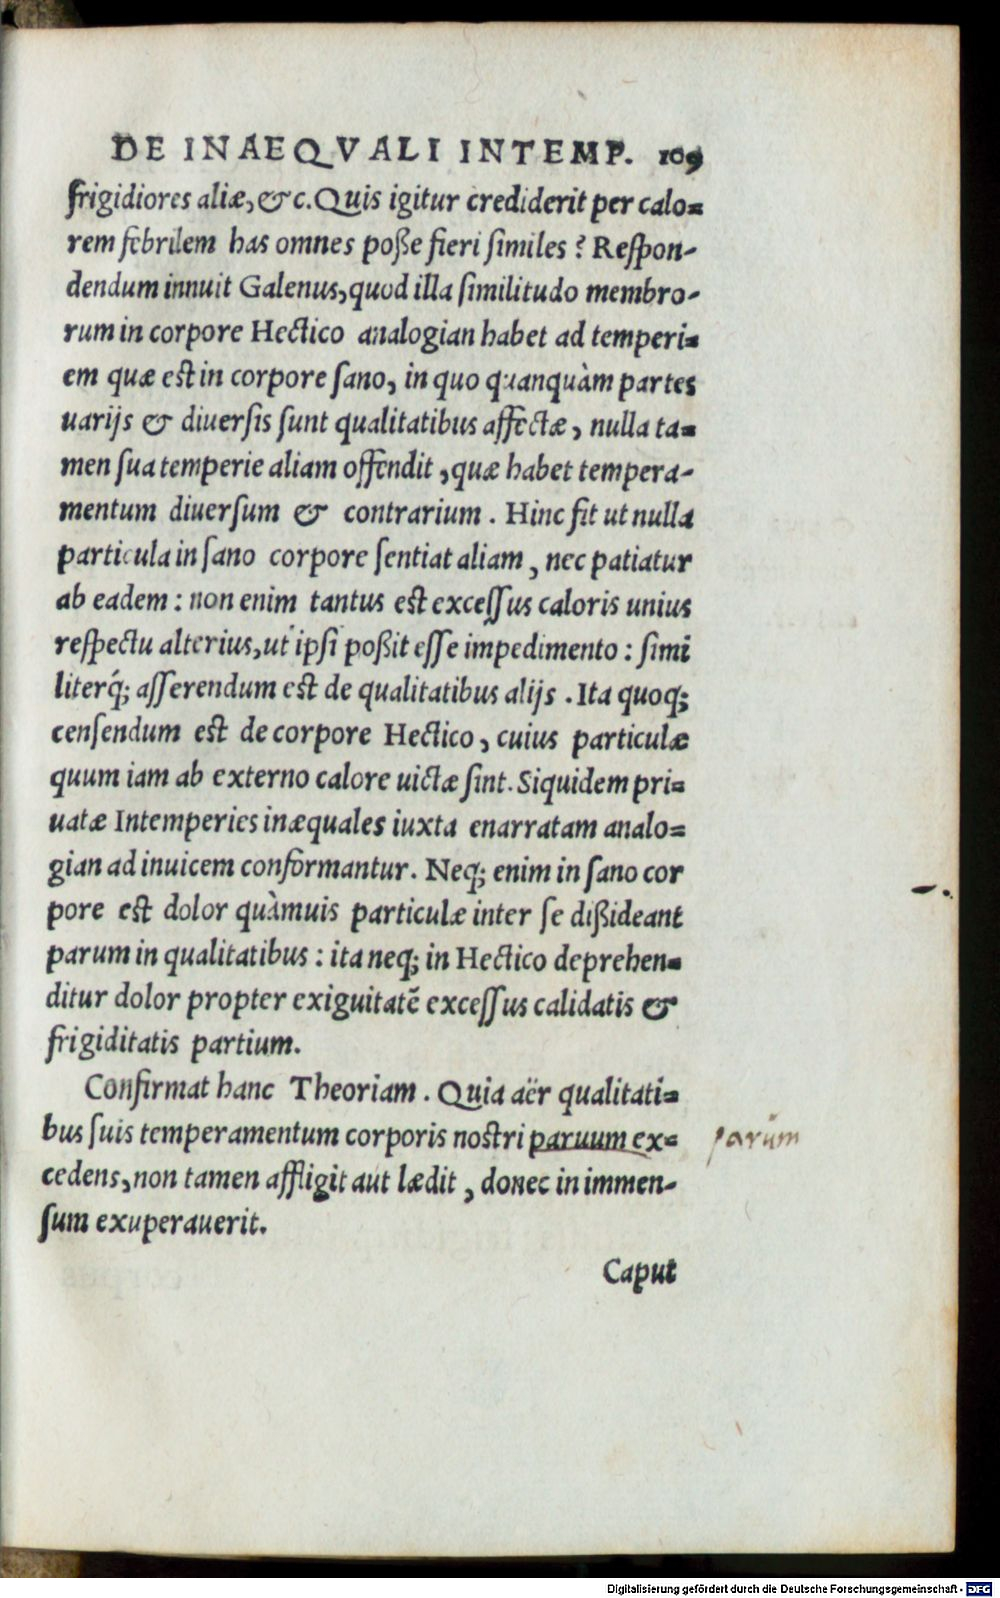 DE INAEQVALI INTEMP. 109
frigidiores aliæ, & c. Quis igitur crediderit per calo=
rem febrilem has omnes poße fieri ſimiles ? Reſpon-
dendum innuit Galenus, quod illa ſimilitudo membro-
rum in corpore Hectico analogian habet ad temperi=
em quæ est in corpore ſano, in quo quanquàm partes
uarijs & diuerſis ſunt qualitatibus affectæ, nulla ta=
men ſua temperie aliam offendit, quæ habet tempera-
mentum diuerſum & contrarium. Hinc fit ut nulla
particula in ſano corpore ſentiat aliam, nec patiatur
ab eadem : non enim tantus est exceſſus caloris unius
reſpectu alterius, ut ipſi poßit eſſe impedimento : ſimi
literq́; aſſerendum est de qualitatibus alijs. Ita quoq;
cenſendum est de corpore Hectico, cuius particulæ
quum iam ab externo calore uictæ ſint. Siquidem pri=
uatæ Intemperies inæquales iuxta enarratam analo=
gian ad inuicem conformantur. Neq; enim in ſano cor
pore est dolor quàmuis particulæ inter ſe dißideant
parum in qualitatibus : ita neq; in Hectico deprehen=
ditur dolor propter exiguitatẽ exceſſus calidatis &
frigiditatis partium.
Confirmat hanc Theoriam. Quia aër qualitati=
bus ſuis temperamentum corporis nostri paruum ex=
parùm
cedens, non tamen affligit aut lædit, donec in immen-
ſum exuperauerit.
Caput
Digitalisierung gefördert durch die Deutsche Forschungsgemeinschaft - DFG